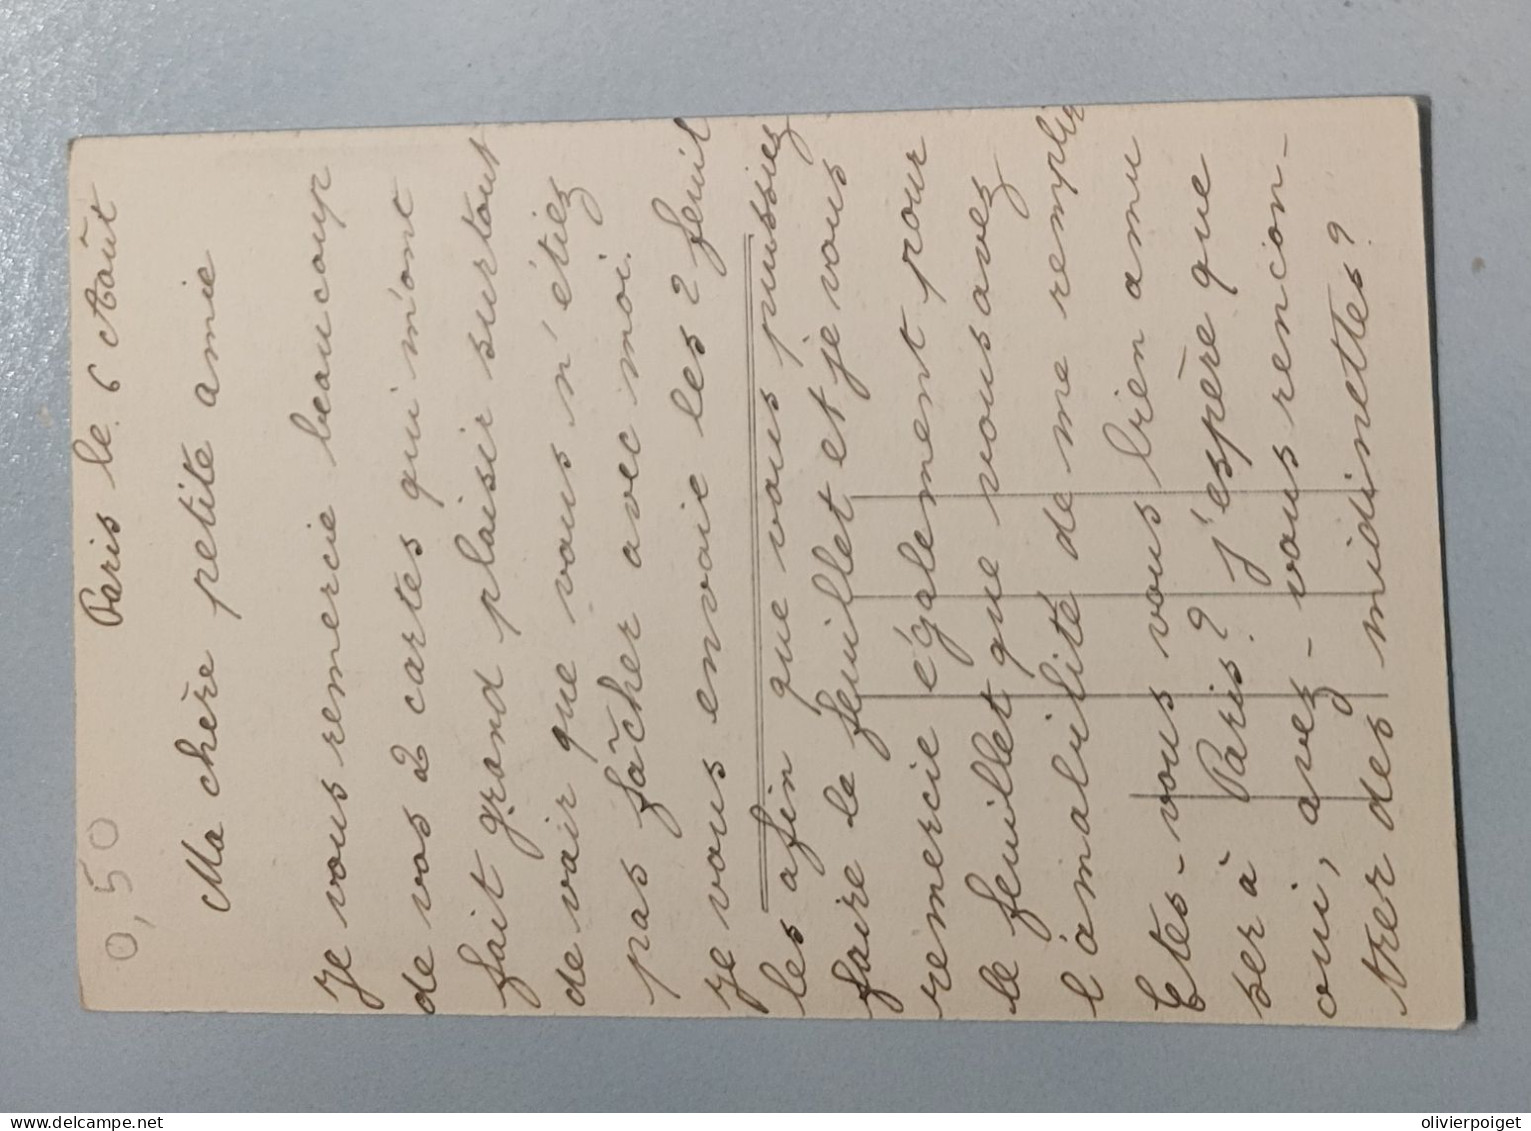 0,50
Paris le 6 Août
Ma chère petite amie
Je vous remercie beaucoup
de vos 2 cartes qui m'ont
fait grand plaisir surtout
de voir que vous n'étiez
pas fâcher avec moi.
Je vous envoie les 2 feuil
les afin que vous puissiez
faire le feuillet et je vous
remercie également pour
le feuillet que vous avez
l'amabilité de me remplir
Etes-vous vous bien amu
ser à Paris? J'espère que
oui, avez-vous rencon-
trer des midinettes?
delcampe.net
olivierpoiget